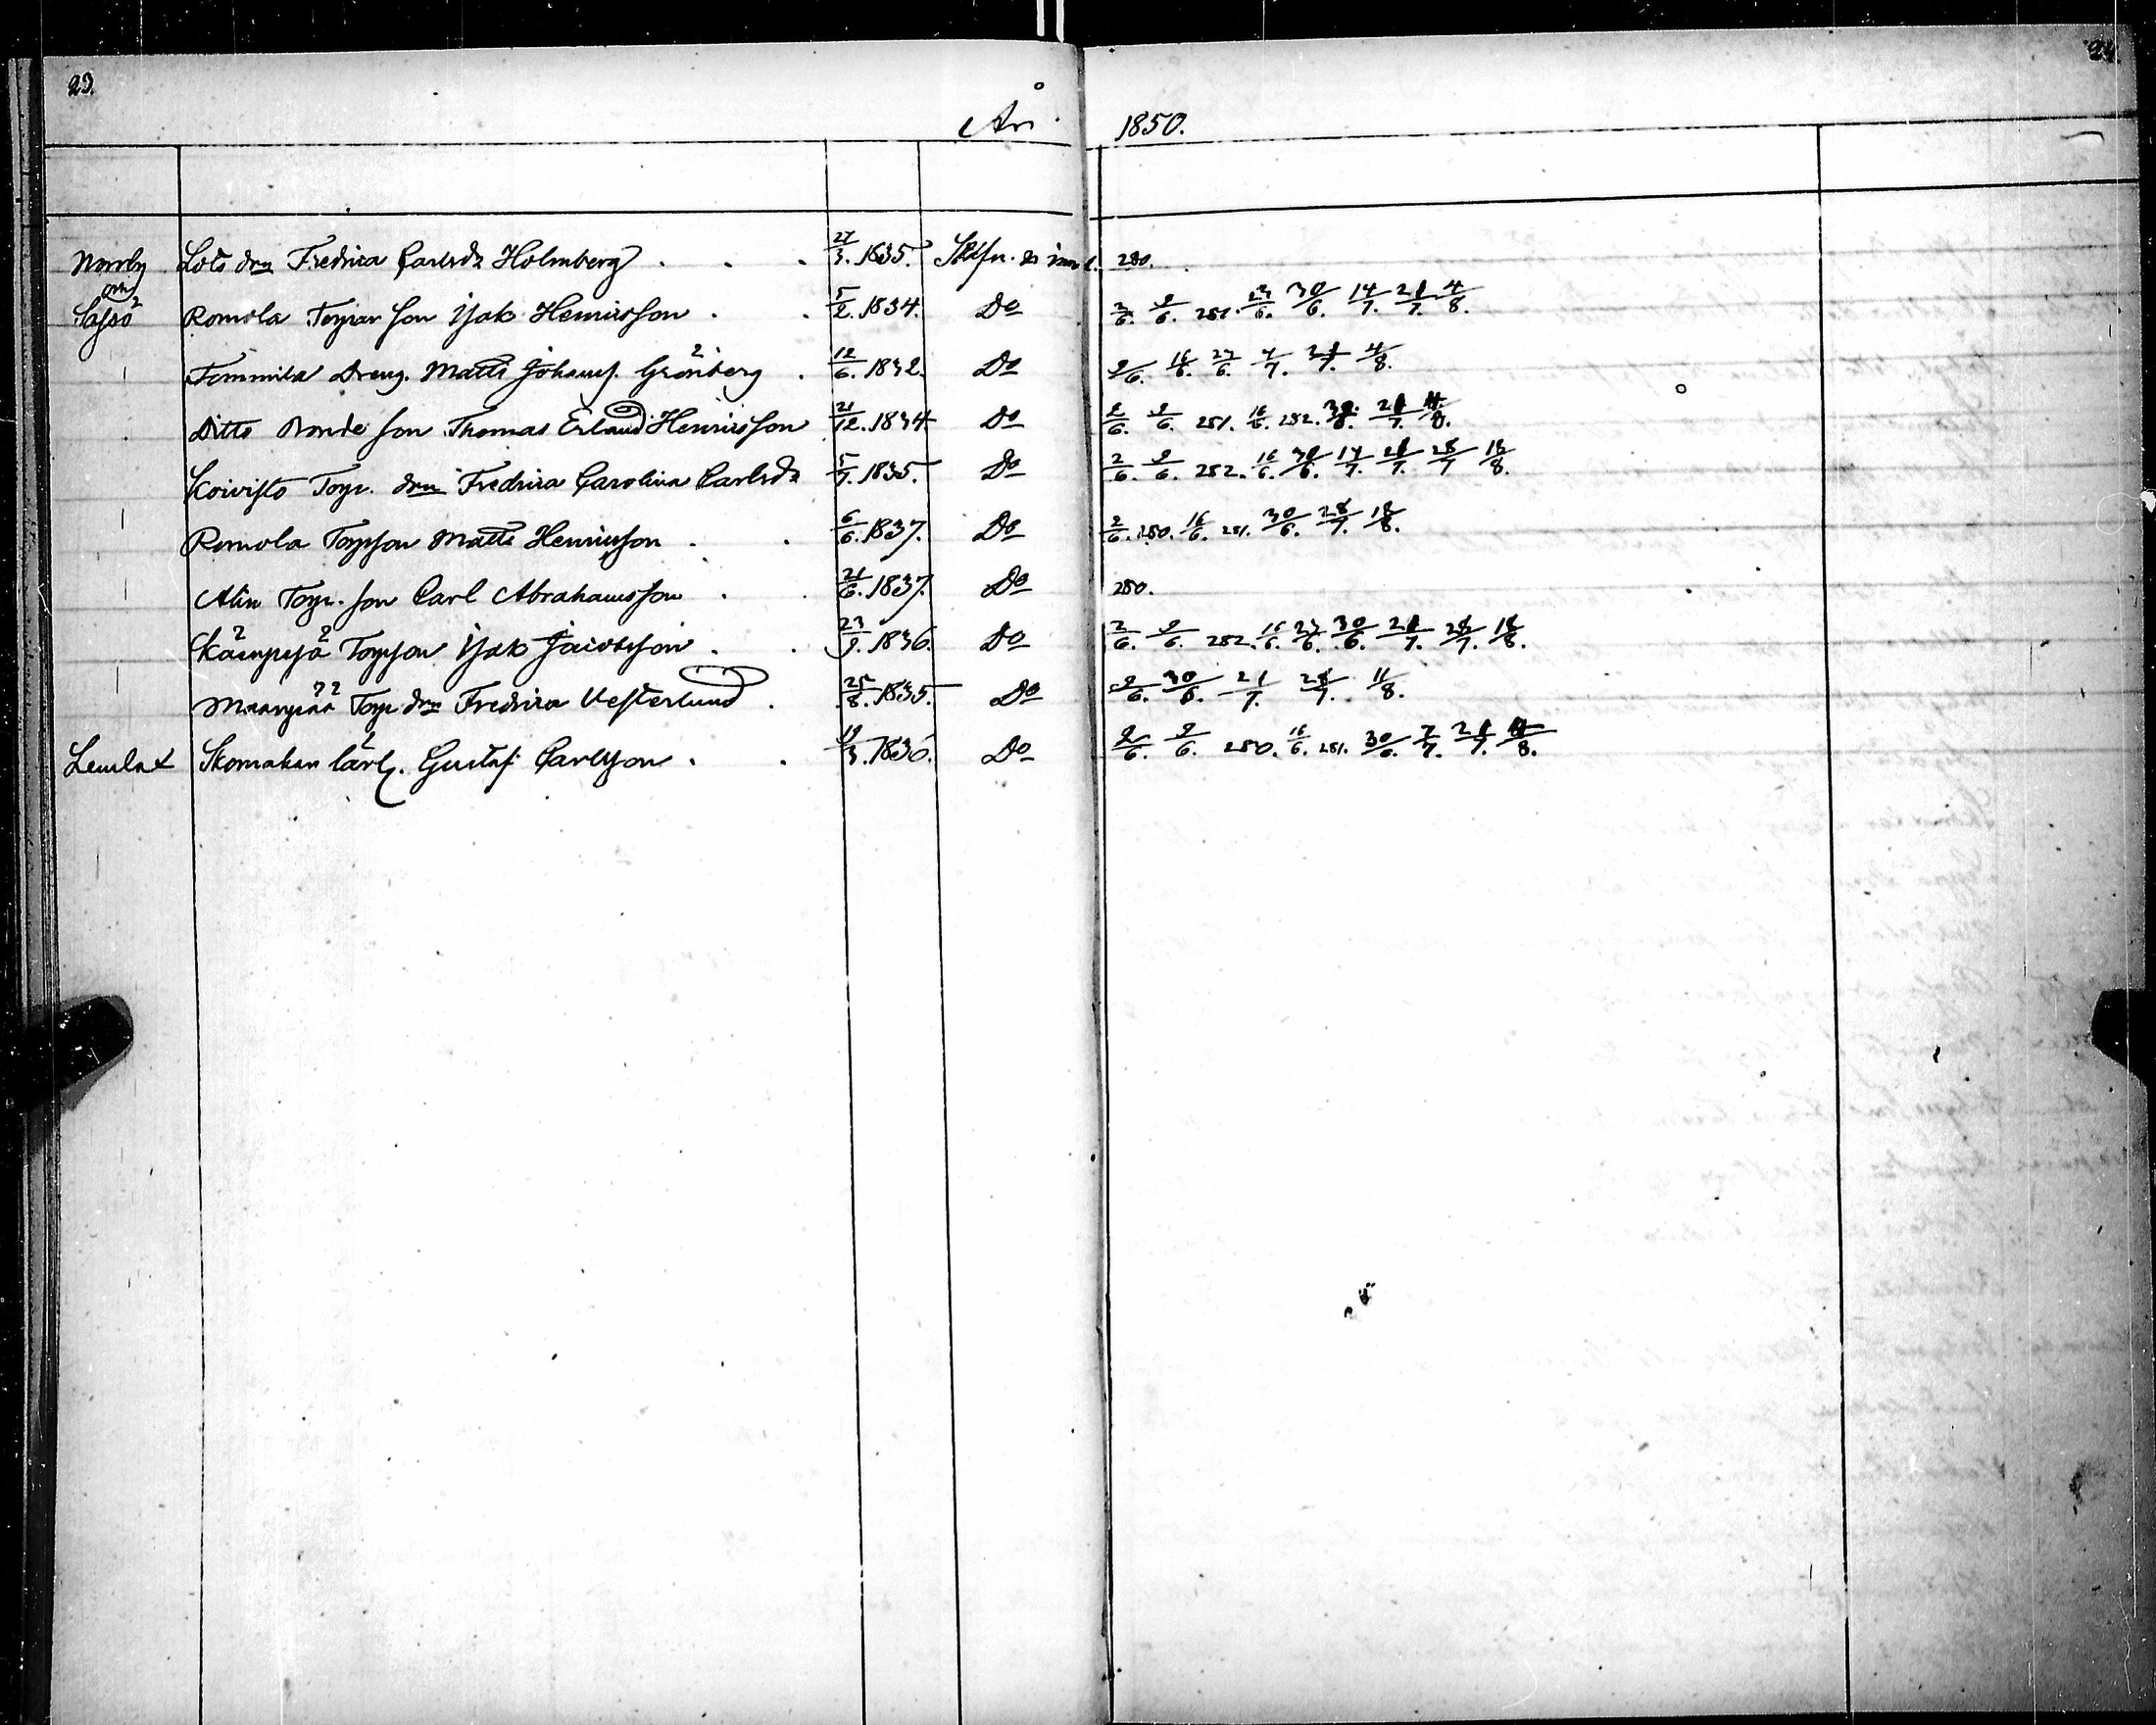 23. 24.
År 1850.
Norrby Lots drn Fredrica Carlsdr Holmberg . . . 27/3. 1835. 280.
och
Sassö Romola Torpar son Isak Henricsson . . 5/2. 1834. Do 2/6. 9/6. 281. 23/6. 30/6. 14/7. 21/7. 4/8.
Dreng. Matts Johanss. Grönberg . 12/6. 1832. Do 9/6. 16/6. 23/6. 7/7. 21/7. 4/8.
Ditto Bonde son Thomas Erland Henricsson 21/12. 1834 Do 2/6. 9/6. 281. 16/6. 282. 21/7.
Koivisto Torp. drn Fredrica Carolina Carlsdr 5/7. 1835. Do 2/6. 9/6. 282. 16/6. 30/6. 14/7. 21/7. 28/7 18/8.
Romola Torpson Matts Henricsson . . 6/6. 1837. Do 2/6. 280. 16/6. 281. 30/6. 28/7. 18/8.
Alin Torp. son Carl Abrahamsson . . 21/6. 1837. Do 280.
Kämpejä Torpson Isak Jacobsson . . 23/9. 1836. Do 2/6. 9/6. 282. 16/6. 23/6. 30/6. 21/7. 28/7. 18/8.
Maanpää Torp. drn Fredrica Vesterlund . 25/8. 1835. Do 9/6. 30/6. 21/7. 28/7. 11/8.
Lemlax Skomakare lärl. Gustaf Carlsson . . 19/3. 1836. Do 2/6. 9/6. 280. 16/6. 281. 30/6. 7/7. 21/7. 11/8.